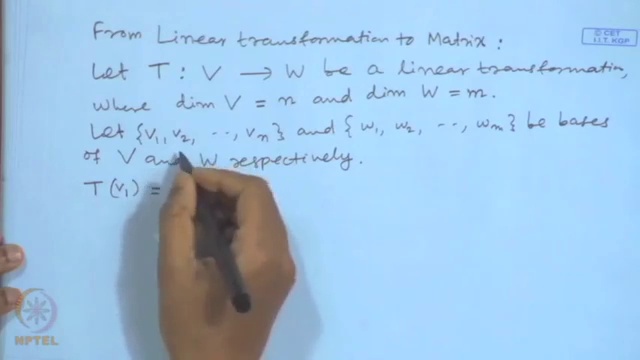 From Linear transformation to Matrix:
© CET
I.I.T. KGP
Let T : V → W be a linear transformation,
where dim V = n and dim W = m.
Let {v₁, v₂, ..., vₙ} and {w₁, w₂, ..., wₘ} be bases
of V and W respectively.
T(v₁) =
NPTEL